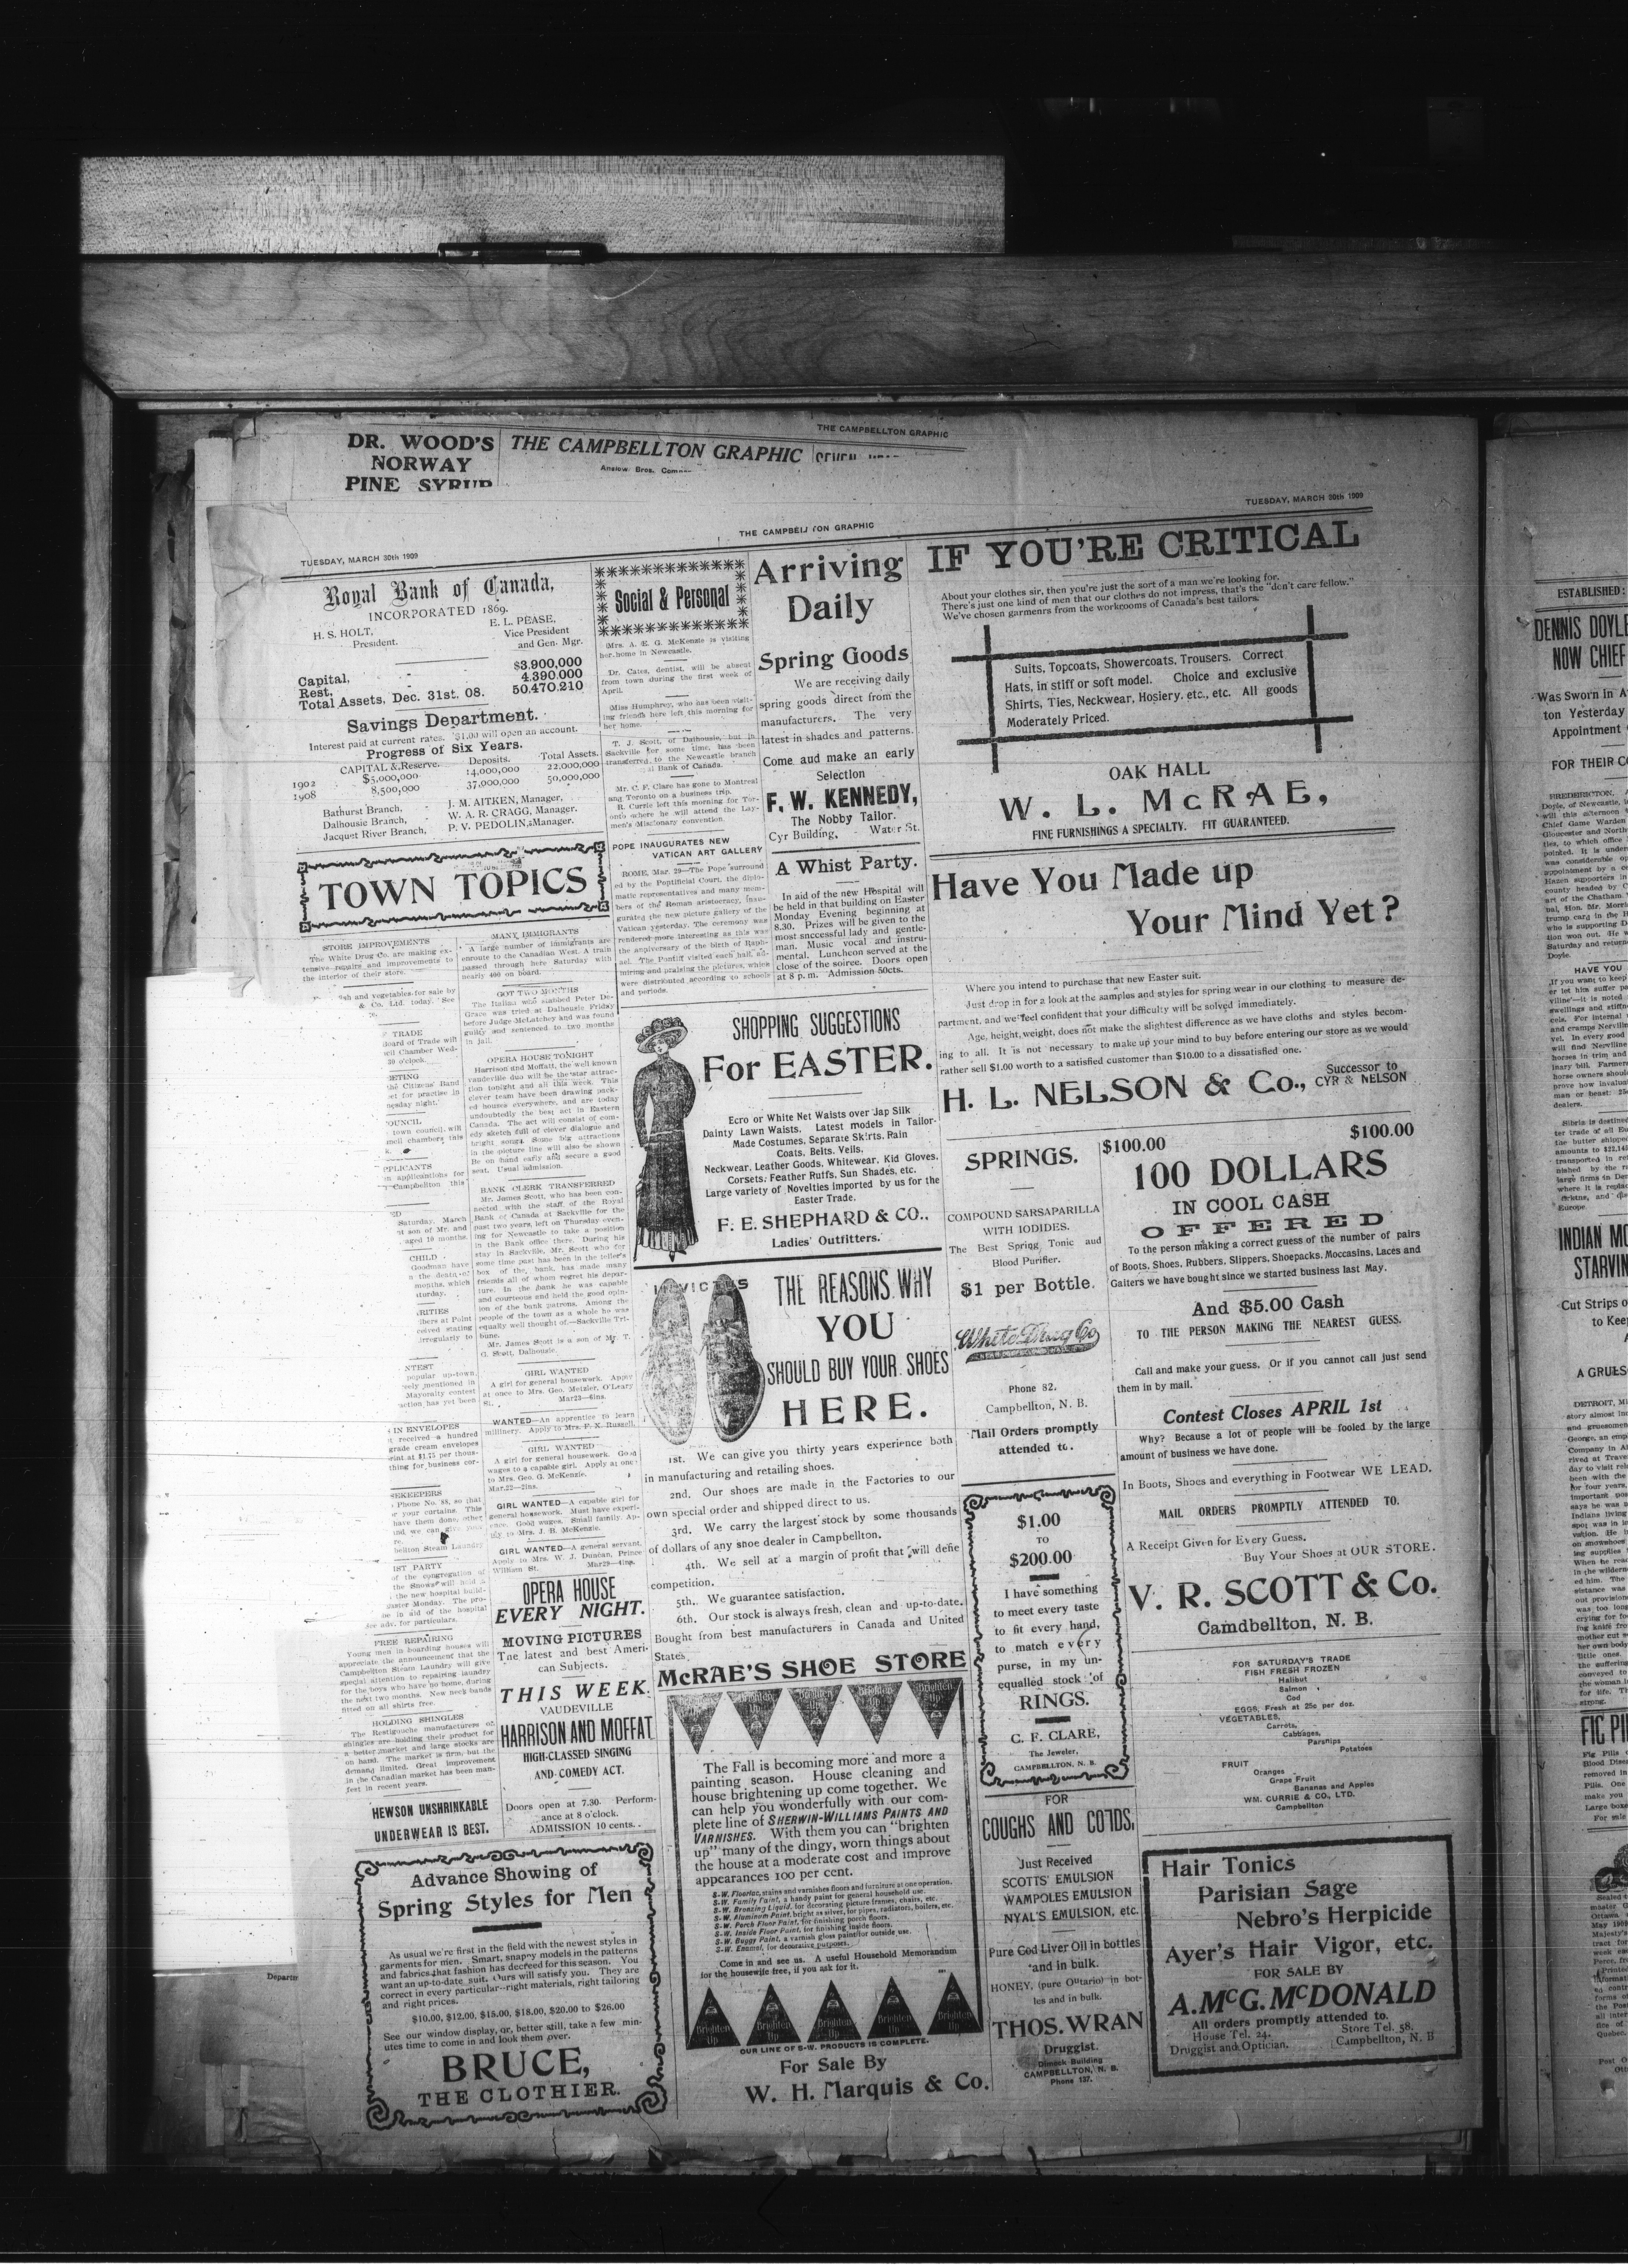 THE CAMPBELLTON GRAPHIC
DR. WOOD'S
NORWAY
PINE SYRUP
THE CAMPBELLTON GRAPHIC
Anslow Bros.
TUESDAY, MARCH 30th 1909
THE CAMPBELLTON GRAPHIC
TUESDAY, MARCH 30th 1909
Royal Bank of Canada,
INCORPORATED 1869.
H. S. HOLT,
President.
E. L. PEASE,
Vice President
and Gen. Mgr.
Capital, $3.900,000
Rest, 4.390.000
Total Assets, Dec. 31st. 08. 50.470.210
Savings Department.
Interest paid at current rates. $1.00 will open an account.
Progress of Six Years.
CAPITAL & Reserve. Deposits. Total Assets.
1902 $5,000,000 14,000,000 22,000,000
1908 8,500,000 37,000,000 50,000,000
Bathurst Branch, J. M. AITKEN, Manager,
Dalhousie Branch, W. A. R. CRAGG, Manager.
Jacquet River Branch, P. V. PEDOLIN, Manager.
TOWN TOPICS
STORE IMPROVEMENTS
The White Drug Co. are making ex-
tensive repairs and improvements to
the interior of their store.
fish and vegetables for sale by
& Co. Ltd. today. See
TRADE
Board of Trade will
Chamber Wed-
30 o'clock.
MEETING
the Citizens' Band
for practise in
nesday night.
COUNCIL
town council will
council chambers this
APPLICANTS
applications for
Campbellton this
Saturday, March
son of Mr. and
aged 10 months.
CHILD
Goodman have
the death of
months, which
Saturday.
at Point
stating
irregularly to
CONTEST
popular up-town
mentioned in
Mayoralty contest
action has yet been
IN ENVELOPES
received a hundred
grade cream envelopes
print at $1.75 per thous-
thing for business cor-
HOUSEKEEPERS
Phone No. 88, so that
or your curtains. This
have them done, other
and we can give your
Campbellton Steam Laundry
WHIST PARTY
of the congregation of
the Snows will hold a
the new hospital build-
Easter Monday. The pro-
be in aid of the hospital
See adv. for particulars.
FREE REPAIRING
Young men in boarding houses will
appreciate the announcement that the
Campbellton Steam Laundry will give
special attention to repairing laundry
for the boys who have no home, during
the next two months. New neck bands
fitted on all shirts free.
HOLDING SHINGLES
The Restigouche manufacturers of
shingles are holding their product for
a better market and large stocks are
on hand. The market is firm, but the
demand limited. Great improvement
in the Canadian market has been man-
fest in recent years.
HEWSON UNSHRINKABLE
UNDERWEAR IS BEST.
MANY IMMIGRANTS
A large number of immigrants are
enroute to the Canadian West. A train
passed through here Saturday with
nearly 400 on board.
GOT TWO MONTHS
The Italian who stabbed Peter De-
Grace was tried at Dalhousie Friday
before Judge McLatchey and was found
guilty and sentenced to two months
in jail.
OPERA HOUSE TONIGHT
Harrison and Moffatt, the well known
vaudeville duo will be the star attrac-
tion tonight and all this week. This
clever team have been drawing pack-
ed houses everywhere, and are today
undoubtedly the best act in Eastern
Canada. The act will consist of com-
edy sketch full of clever dialogue and
bright songs. Some big attractions
in the picture line will also be shown
Be on hand early and secure a good
seat. Usual admission.
BANK CLERK TRANSFERRED
Mr. James Scott, who has been con-
nected with the staff of the Royal
Bank of Canada at Sackville for the
past two years, left on Thursday even-
ing for Newcastle to take a position
in the Bank office there. During his
stay in Sackville, Mr. Scott who for
some time past has been in the teller's
box of the bank, has made many
friends all of whom regret his depar-
ture. In the bank he was capable
and courteous and held the good opin-
ion of the bank patrons. Among the
people of the town as a whole he was
equally well thought of.—Sackville Tri-
bune.
Mr. James Scott is a son of Mr. T.
G. Scott, Dalhousie.
GIRL WANTED
A girl for general housework. Apply
at once to Mrs. Geo. Metzler, O'Leary
St. Mar23—6ins.
WANTED—An apprentice to learn
millinery. Apply to Mrs. P. X. Russell.
GIRL WANTED
A girl for general housework. Good
wages to a capable girl. Apply at once
to Mrs. Geo. G. McKenzie.
Mar.22—2ins.
GIRL WANTED—A capable girl for
general housework. Must have experi-
ence. Good wages. Small family. Ap-
ply to Mrs. J. B. McKenzie.
GIRL WANTED—A general servant.
Apply to Mrs. W. J. Duncan, Prince
William St. Mar29—4ins.
OPERA HOUSE
EVERY NIGHT.
MOVING PICTURES
The latest and best Ameri-
can Subjects.
THIS WEEK.
VAUDEVILLE
HARRISON AND MOFFAT
HIGH-CLASSED SINGING
AND COMEDY ACT.
Doors open at 7.30. Perform-
ance at 8 o'clock.
ADMISSION 10 cents.
Advance Showing of
Spring Styles for Men
As usual we're first in the field with the newest styles in
garments for men. Smart, snappy models in the patterns
and fabrics that fashion has decreed for this season. You
want an up-to-date suit. Ours will satisfy you. They are
correct in every particular--right materials, right tailoring
and right prices.
$10.00, $12.00, $15.00, $18.00, $20.00 to $26.00
See our window display, or, better still, take a few min-
utes time to come in and look them over.
BRUCE,
THE CLOTHIER.
Social & Personal
Mrs. A. E. G. McKenzie is visiting
her home in Newcastle.
Dr. Cates, dentist, will be absent
from town during the first week of
April.
Miss Humphrey, who has been visit-
ing friends here left this morning for
her home.
T. J. Scott, of Dalhousie, but in
Sackville for some time, has been
transferred to the Newcastle branch
Bank of Canada.
Mr. C. F. Clare has gone to Montreal
and Toronto on a business trip.
R. Currie left this morning for Tor-
onto where he will attend the Lay-
men's Missionary convention.
POPE INAUGURATES NEW
VATICAN ART GALLERY
ROME, Mar. 29—The Pope surround
ed by the Pontificial Court, the diplo-
matic representatives and many mem-
bers of the Roman aristocracy, inau-
gurated the new picture gallery of the
Vatican yesterday. The ceremony was
rendered more interesting as this was
the anniversary of the birth of Raph-
ael. The Pontiff visited each hall, ad-
miring and praising the pictures, which
were distributed according to schools
and periods.
Arriving
Daily
Spring Goods
We are receiving daily
spring goods direct from the
manufacturers. The very
latest in shades and patterns.
Come aud make an early
Selection
F. W. KENNEDY,
The Nobby Tailor.
Cyr Building, Water St.
A Whist Party.
In aid of the new Hospital will
be held in that building on Easter
Monday Evening beginning at
8.30. Prizes will be given to the
most successful lady and gentle-
man. Music vocal and instru-
mental. Luncheon served at the
close of the soiree. Doors open
at 8 p. m. Admission 50cts.
SHOPPING SUGGESTIONS
For EASTER.
Ecro or White Net Waists over Jap Silk
Dainty Lawn Waists. Latest models in Tailor-
Made Costumes, Separate Skirts, Rain
Coats, Belts, Veils,
Neckwear, Leather Goods, Whitewear, Kid Gloves,
Corsets, Feather Ruffs, Sun Shades, etc.
Large variety of Novelties imported by us for the
Easter Trade.
F. E. SHEPHARD & CO.,
Ladies' Outfitters.
INVICTUS
THE REASONS WHY
YOU
SHOULD BUY YOUR SHOES
HERE.
1st. We can give you thirty years experience both
in manufacturing and retailing shoes.
2nd. Our shoes are made in the Factories to our
own special order and shipped direct to us.
3rd. We carry the largest stock by some thousands
of dollars of any shoe dealer in Campbellton.
4th. We sell at a margin of profit that will defie
competition.
5th. We guarantee satisfaction.
6th. Our stock is always fresh, clean and up-to-date.
Bought from best manufacturers in Canada and United
States.
McRAE'S SHOE STORE
Brighten Up
Brighten Up
Brighten Up
Brighten Up
Brighten Up
The Fall is becoming more and more a
painting season. House cleaning and
house brightening up come together. We
can help you wonderfully with our com-
plete line of SHERWIN-WILLIAMS PAINTS AND
VARNISHES. With them you can "brighten
up" many of the dingy, worn things about
the house at a moderate cost and improve
appearances 100 per cent.
S-W. Floorlac, stains and varnishes floors and furniture at one operation.
S-W. Family Paint, a handy paint for general household use.
S-W. Bronzing Liquid, for decorating picture frames, chairs, etc.
S-W. Aluminum Paint, bright as silver, for pipes, radiators, boilers, etc.
S-W. Porch Floor Paint, for finishing porch floors.
S-W. Inside Floor Paint, for finishing inside floors.
S-W. Buggy Paint, a varnish gloss paint for outside use.
S-W. Enamel, for decorative purposes.
Come in and see us. A useful Household Memorandum
for the housewife free, if you ask for it.
Brighten Up
Brighten Up
Brighten Up
Brighten Up
Brighten Up
OUR LINE OF S-W. PRODUCTS IS COMPLETE.
For Sale By
W. H. Marquis & Co.
IF YOU'RE CRITICAL
About your clothes sir, then you're just the sort of a man we're looking for.
There's just one kind of men that our clothes do not impress, that's the "don't care fellow."
We've chosen garmenrs from the workrooms of Canada's best tailors.
Suits, Topcoats, Showercoats. Trousers. Correct
Hats, in stiff or soft model. Choice and exclusive
Shirts, Ties, Neckwear, Hosiery. etc., etc. All goods
Moderately Priced.
OAK HALL
W. L. McRAE,
FINE FURNISHINGS A SPECIALTY. FIT GUARANTEED.
Have You Made up
Your Mind Yet?
Where you intend to purchase that new Easter suit.
Just drop in for a look at the samples and styles for spring wear in our clothing to measure de-
partment, and we feel confident that your difficulty will be solved immediately.
Age, height, weight, does not make the slightest difference as we have cloths and styles becom-
ing to all. It is not necessary to make up your mind to buy before entering our store as we would
rather sell $1.00 worth to a satisfied customer than $10.00 to a dissatisfied one.
H. L. NELSON & Co., Successor to
CYR & NELSON
SPRINGS.
COMPOUND SARSAPARILLA
WITH IODIDES.
The Best Spring Tonic and
Blood Purifier.
$1 per Bottle.
White Drug Co
Phone 82.
Campbellton, N. B.
Mail Orders promptly
attended to.
$1.00
TO
$200.00
I have something
to meet every taste
to fit every hand,
to match every
purse, in my un-
equalled stock of
RINGS.
C. F. CLARE,
The Jeweler,
CAMPBELLTON, N. B.
FOR
COUGHS AND COLDS,
Just Received
SCOTTS' EMULSION
WAMPOLES EMULSION
NYAL'S EMULSION, etc.
Pure Cod Liver Oil in bottles
and in bulk.
HONEY, (pure Ontario) in bot-
les and in bulk.
THOS. WRAN
Druggist.
Dimock Building
CAMPBELLTON, N. B.
Phone 137.
$100.00 $100.00
100 DOLLARS
IN COOL CASH
OFFERED
To the person making a correct guess of the number of pairs
of Boots, Shoes, Rubbers, Slippers, Shoepacks, Moccasins, Laces and
Gaiters we have bought since we started business last May.
And $5.00 Cash
TO THE PERSON MAKING THE NEAREST GUESS.
Call and make your guess. Or if you cannot call just send
them in by mail.
Contest Closes APRIL 1st
Why? Because a lot of people will be fooled by the large
amount of business we have done.
In Boots, Shoes and everything in Footwear WE LEAD.
MAIL ORDERS PROMPTLY ATTENDED TO.
A Receipt Given for Every Guess.
Buy Your Shoes at OUR STORE.
V. R. SCOTT & Co.
Camdbellton, N. B.
FOR SATURDAY'S TRADE
FISH FRESH FROZEN
Halibut
Salmon
Cod
EGGS, Fresh at 25c per doz.
VEGETABLES,
Carrots,
Cabbages,
Parsnips
Potatoes
FRUIT
Oranges
Grape Fruit
Bananas and Apples
WM. CURRIE & CO., LTD.
Campbellton
Hair Tonics
Parisian Sage
Nebro's Herpicide
Ayer's Hair Vigor, etc.
FOR SALE BY
A. McG. McDONALD
All orders promptly attended to.
House Tel. 24. Store Tel. 58.
Druggist and Optician. Campbellton, N. B
Departm
ESTABLISHED:
DENNIS DOYLE
NOW CHIEF
Was Sworn In
ton Yesterday
Appointment
FOR THEIR
HAVE YOU
INDIAN
STARVIN
Cut Strips
to Kee
A GRUES
DETROIT,
FIG PI